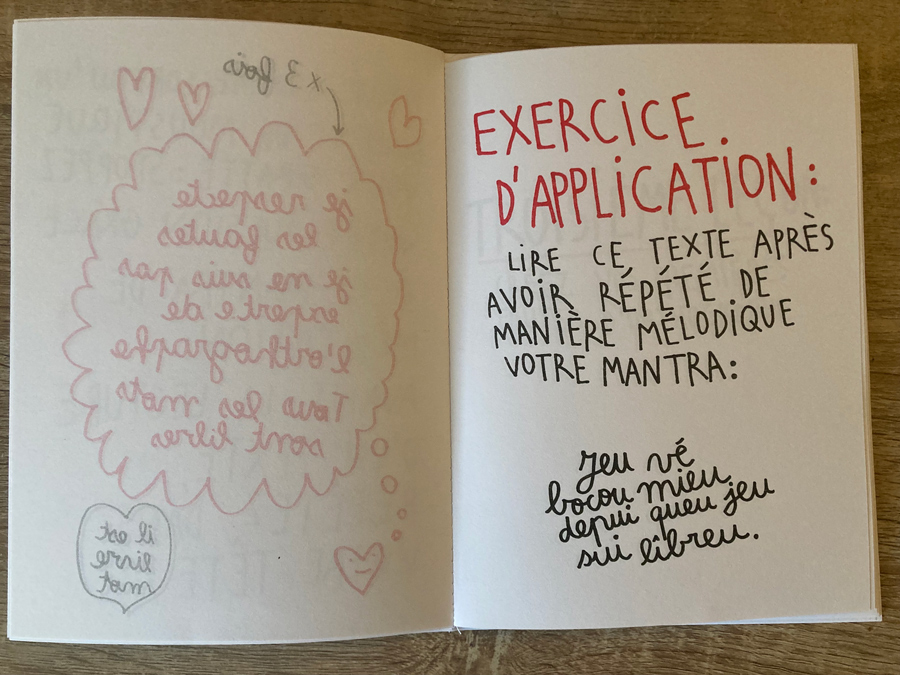 x 3 fois
je respete
les fautes
je ne suis pas
experte de
l'orthografe
Tous les mots
sont libres
il est
mot
EXERCICE
D'APPLICATION:
LIRE CE TEXTE APRÈS
AVOIR RÉPÉTÉ DE
MANIÈRE MÉLODIQUE
VOTRE MANTRA:
jeu vé
bocou mieu
depui queu jeu
sui libreu.